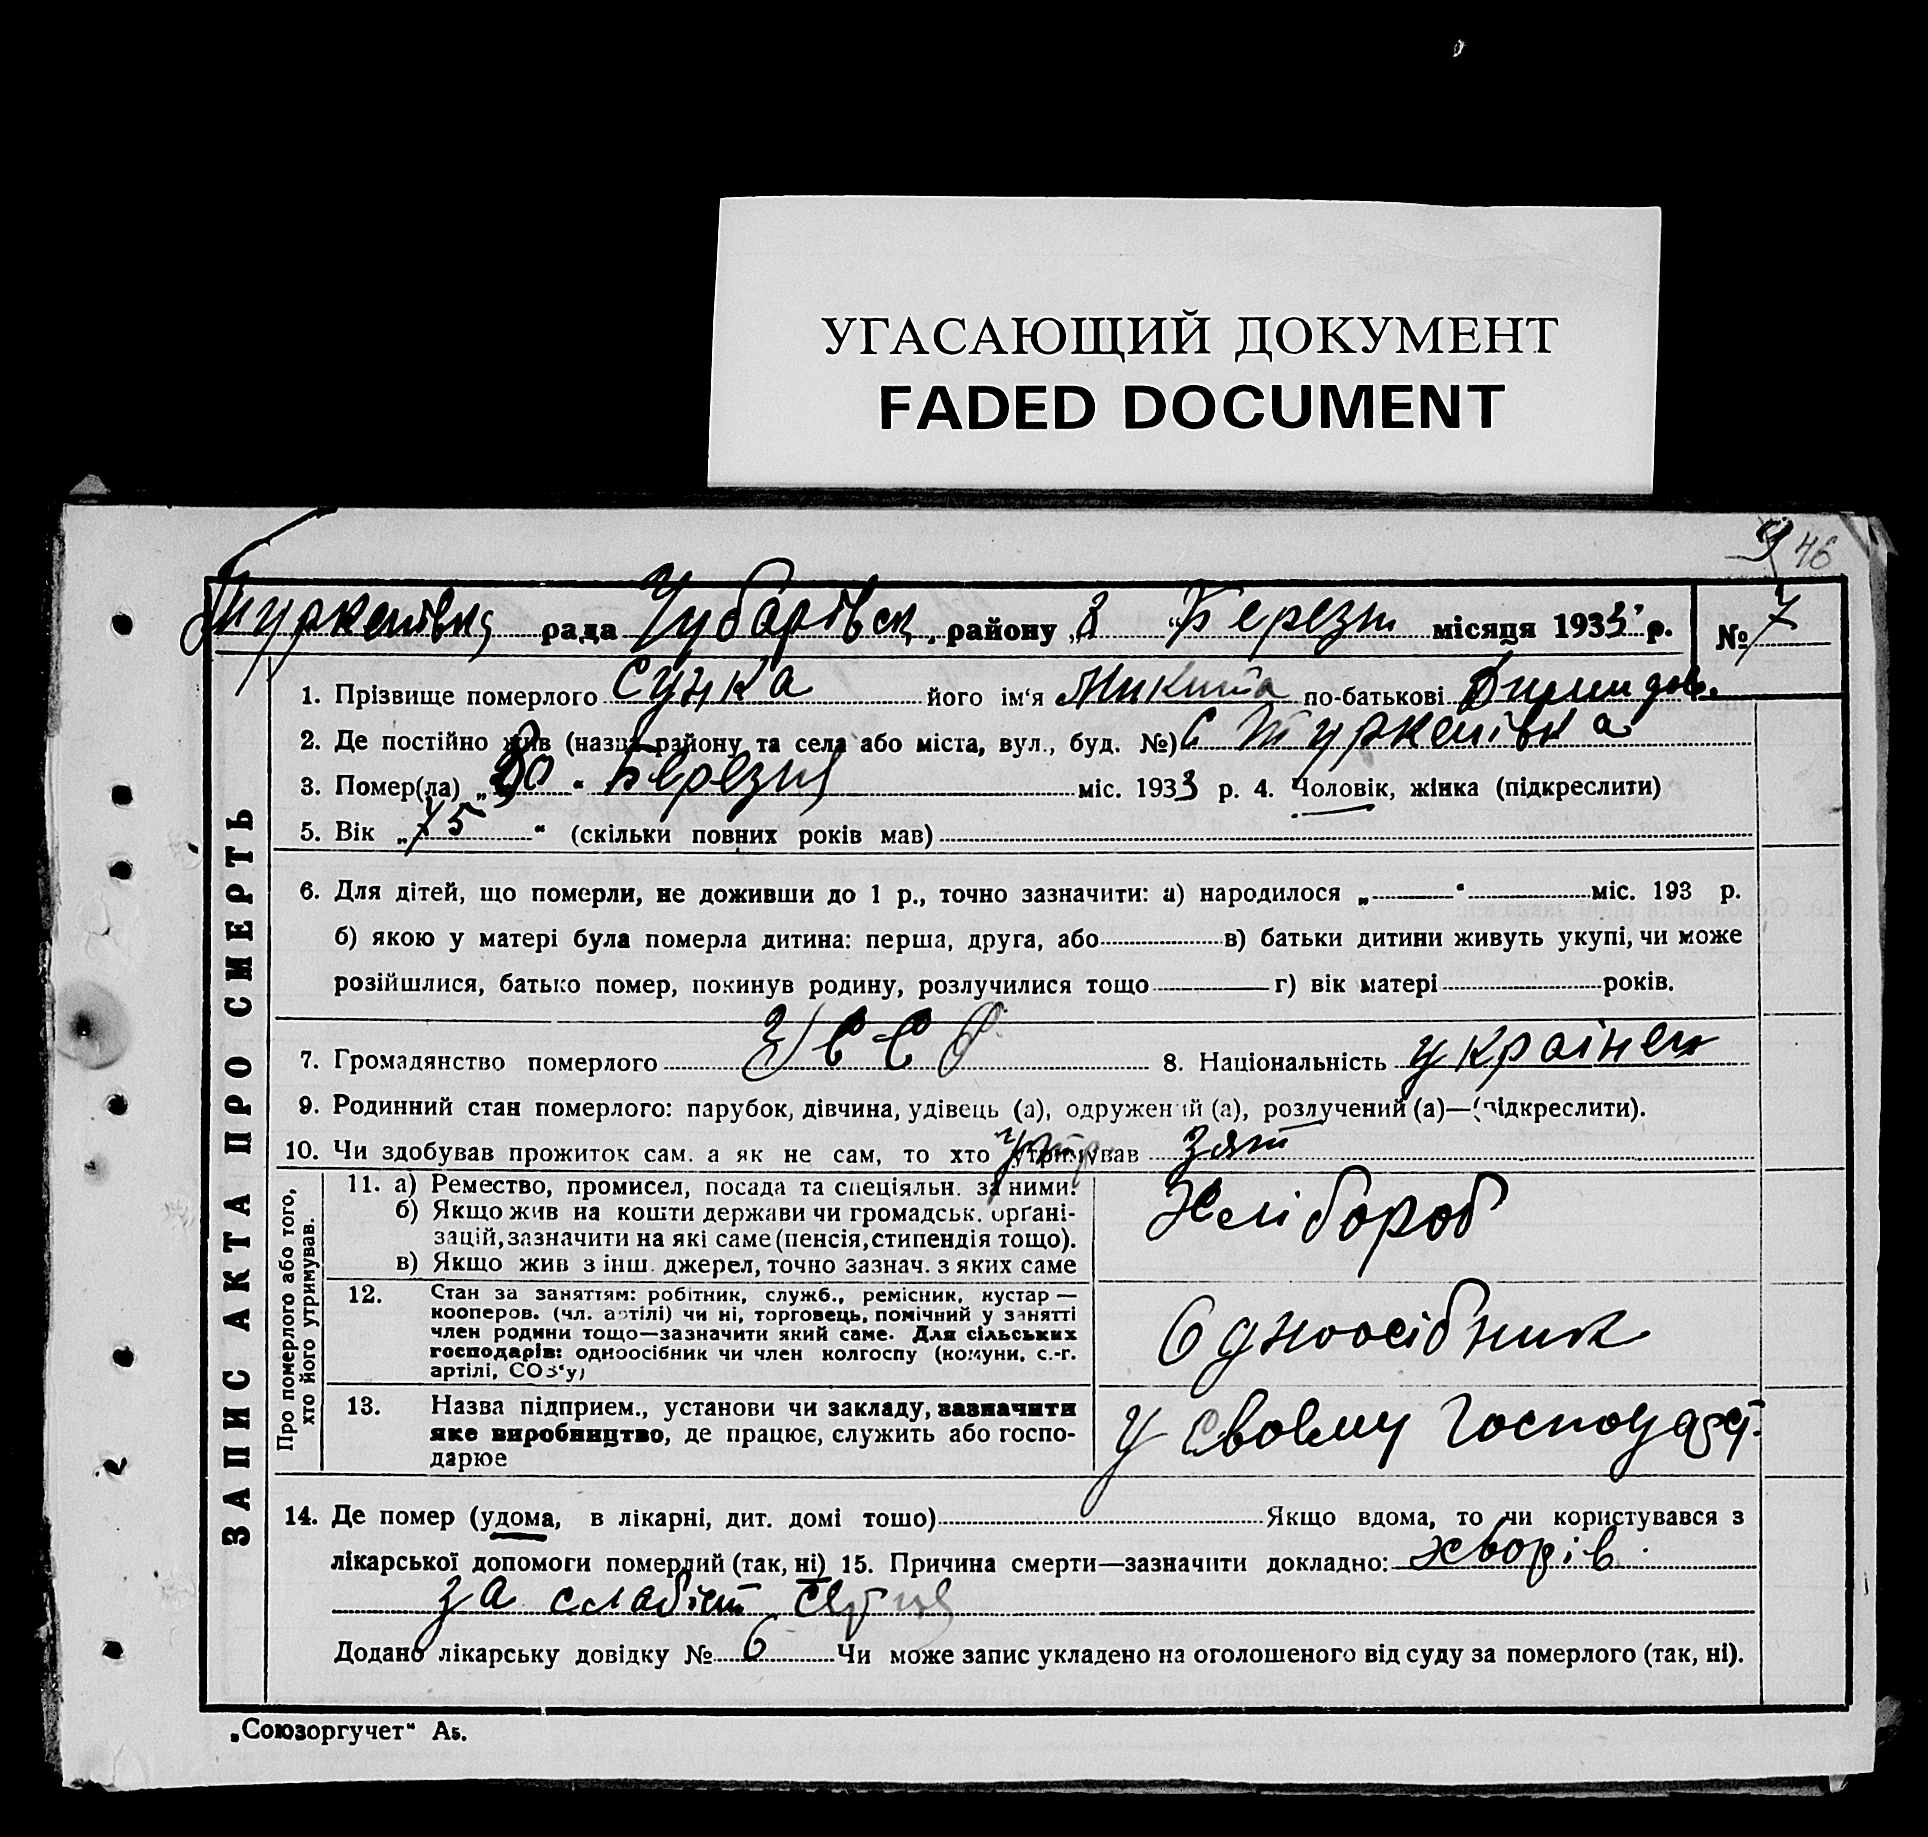 УГАСАЮЩИЙ ДОКУМЕНТ
FADED DOCUMENT
46
Туркенівка рада Чубарівск. району „8 “ Березня місяця 1933 р. № 7
ЗАПИС АКТА ПРО СМЕРТЬ
1. Прізвище померлого Суцка його ім‘я Микита по-батькові
2. Де постійно жив (назва району та села або міста, вул., буд. №) С Туркенівка
3. Помер(ла) „ “ Березня міс. 1933 р. 4. Чоловік, жінка (підкреслити)
5. Вік „75“ (скільки повних років мав)
6. Для дітей, що померли, не доживши до 1 р., точно зазначити: а) народилося „ “ міс. 193 р.
б) якою у матері була померла дитина: перша, друга, або в) батьки дитини живуть укупі, чи може
розійшлися, батько помер, покинув родину, розлучилися тощо г) вік матері років.
7. Громадянство померлого УССР 8. Національність українец
9. Родинний стан померлого: парубок, дівчина, удівець (а), одружений (а), розлучений (а)—(підкреслити).
10. Чи здобував прожиток сам. а як не сам, то хто утримував зят
Про померлого або того,
хто його утримував.
11. а) Ремество, промисел, посада та спеціяльн. за ними:
б) Якщо жив на кошти держави чи громадськ. орґані-
зацій, зазначити на які саме (пенсія, стипендія тощо).
в) Якщо жив з інш. джерел, точно зазнач. з яких саме
Хлібороб
12. Стан за заняттям: робітник, служб., ремісник, кустар —
кооперов. (чл. артілі) чи ні, торговець, помічний у занятті
член родини тощо—зазначити який саме. Для сільських
господарів: одноосібник чи член колгоспу (комуни, с.-г.
артілі, СОЗ‘у)
Одноосібник
13. Назва підприєм., установи чи закладу, зазначити
яке виробництво, де працює, служить або госпо-
дарює
у своєму
14. Де помер (удома, в лікарні, дит. домі тошо) Якщо вдома, то чи користувався з
лікарської допомоги померлий (так, ні) 15. Причина смерти—зазначити докладно: хворів
за слабіст серця
Додано лікарську довідку № 6 Чи може запис укладено на оголошеного від суду за померлого (так, ні).
„Союзоргучет“ А5.